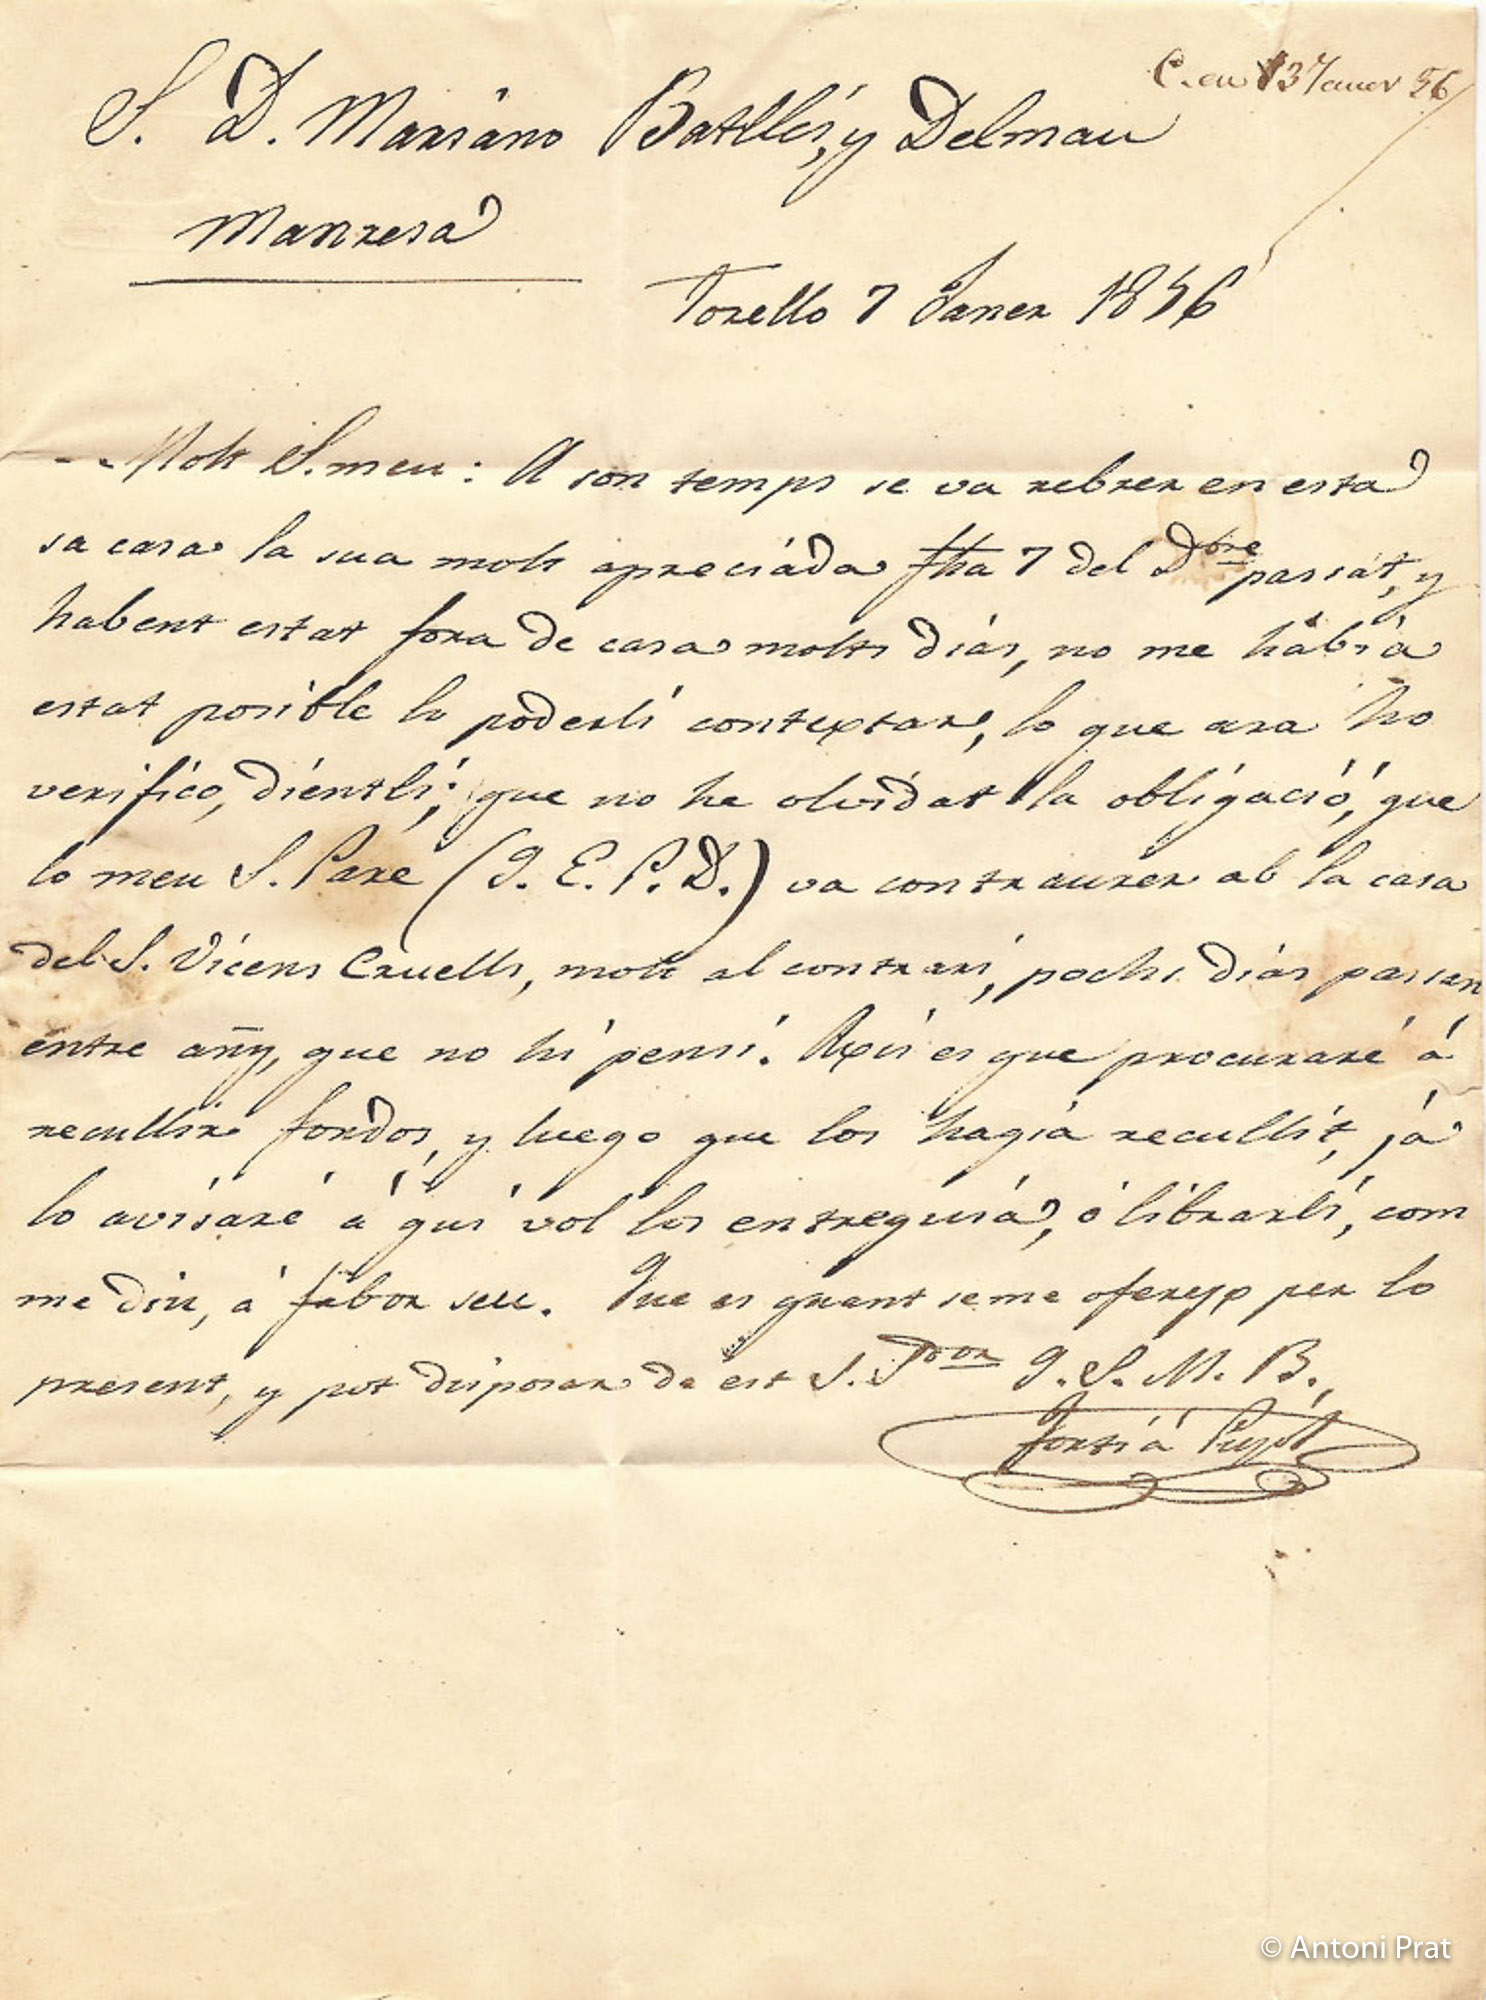 C. en 13 Janer 56
S. D. Mariano Batlles, y Delmau
Manresa
Torello 7 Janer 1856
Molt S. meu: A son temps se va rebrer en esta
sa casa la sua molt apreciáda fha 7 del Dbre passát, y
habent estat fora de casa molts días, no me habia
estat posible lo poderli contextar, lo que ara ho
verifico, dientli; que no he olvidat la obligació, que
lo meu S. Pare (Q. E. P. D.) va contraurer ab la casa
del S. Vicens Cruells, molt al contrari, pochs días passan
entre añy, que no hi pensi. Axis es que procuraré á
recullir fondos, y luego que los hagia recullit, já
lo avisaré á qui vol los entreguia, ó librarli, com
me diu, á fabor seu. Que es quant se me oferex per lo
present, y pot disposar de est S. Sdor Q. S. M. B.
Fortiá Pujol
© Antoni Prat